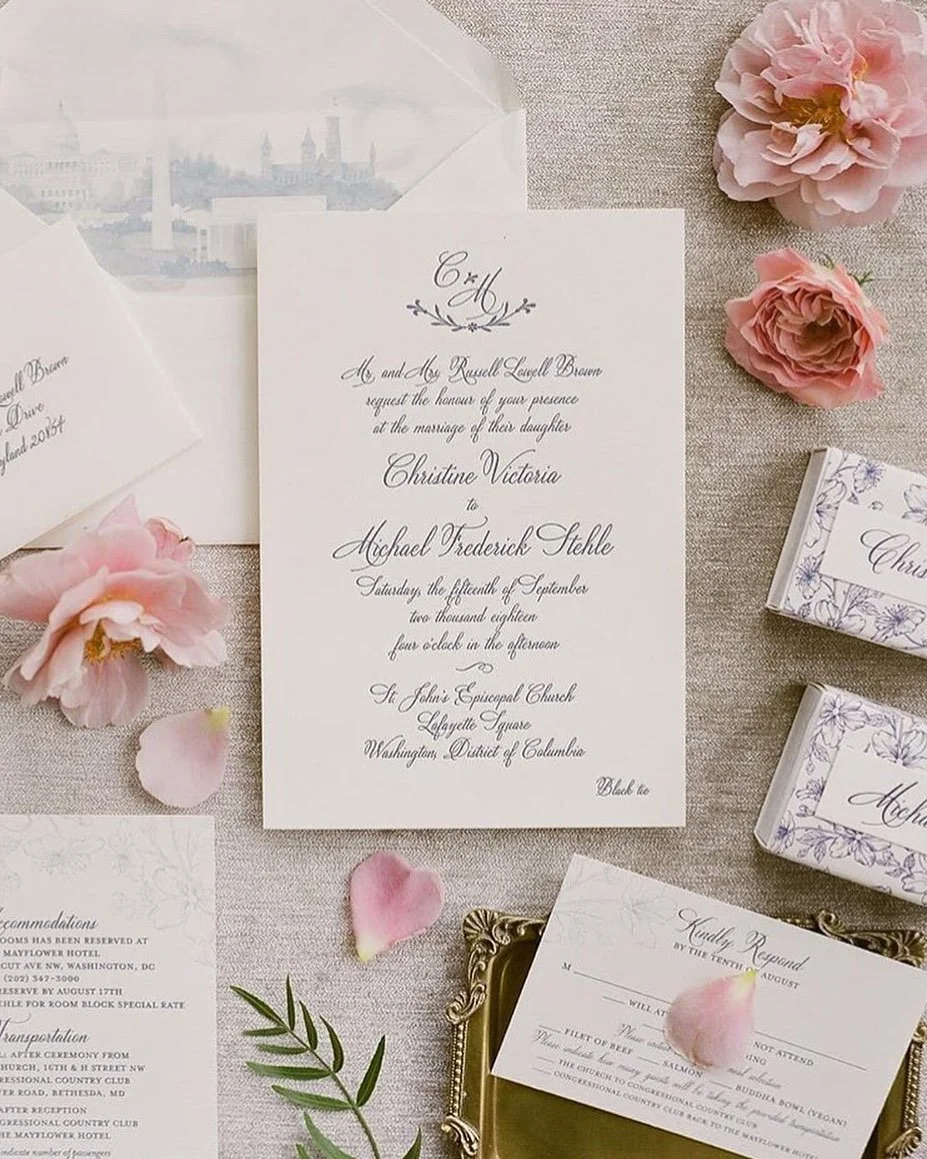 C & M
Mr. and Mrs. Russell Lowell Brown
request the honour of your presence
at the marriage of their daughter
Christine Victoria
to
Michael Frederick Stehle
Saturday, the fifteenth of September
two thousand eighteen
four o'clock in the afternoon
St. John's Episcopal Church
Lafayette Square
Washington, District of Columbia
Black tie
owell Brown
Drive
yland 20854
Chris
Micha
ccommodations
OOMS HAS BEEN RESERVED AT
MAYFLOWER HOTEL
CUT AVE NW, WASHINGTON, DC
(202) 347-3000
RESERVE BY AUGUST 17TH
EHLE FOR ROOM BLOCK SPECIAL RATE
Transportation
AFTER CEREMONY FROM
CHURCH, 16TH & H STREET NW
GRESSIONAL COUNTRY CLUB
ER ROAD, BETHESDA, MD
AFTER RECEPTION
GRESSIONAL COUNTRY CLUB
HE MAYFLOWER HOTEL
indicate number of passengers
Kindly Respond
BY THE TENTH OF AUGUST
M
WILL AT NOT ATTEND
Please meal selection
FILET OF BEEF SALMON BUDDHA BOWL (VEGAN)
Please indicate how many guests will be taking the provided transportation
THE CHURCH TO CONGRESSIONAL COUNTRY CLUB
CONGRESSIONAL COUNTRY CLUB BACK TO THE MAYFLOWER HOTEL